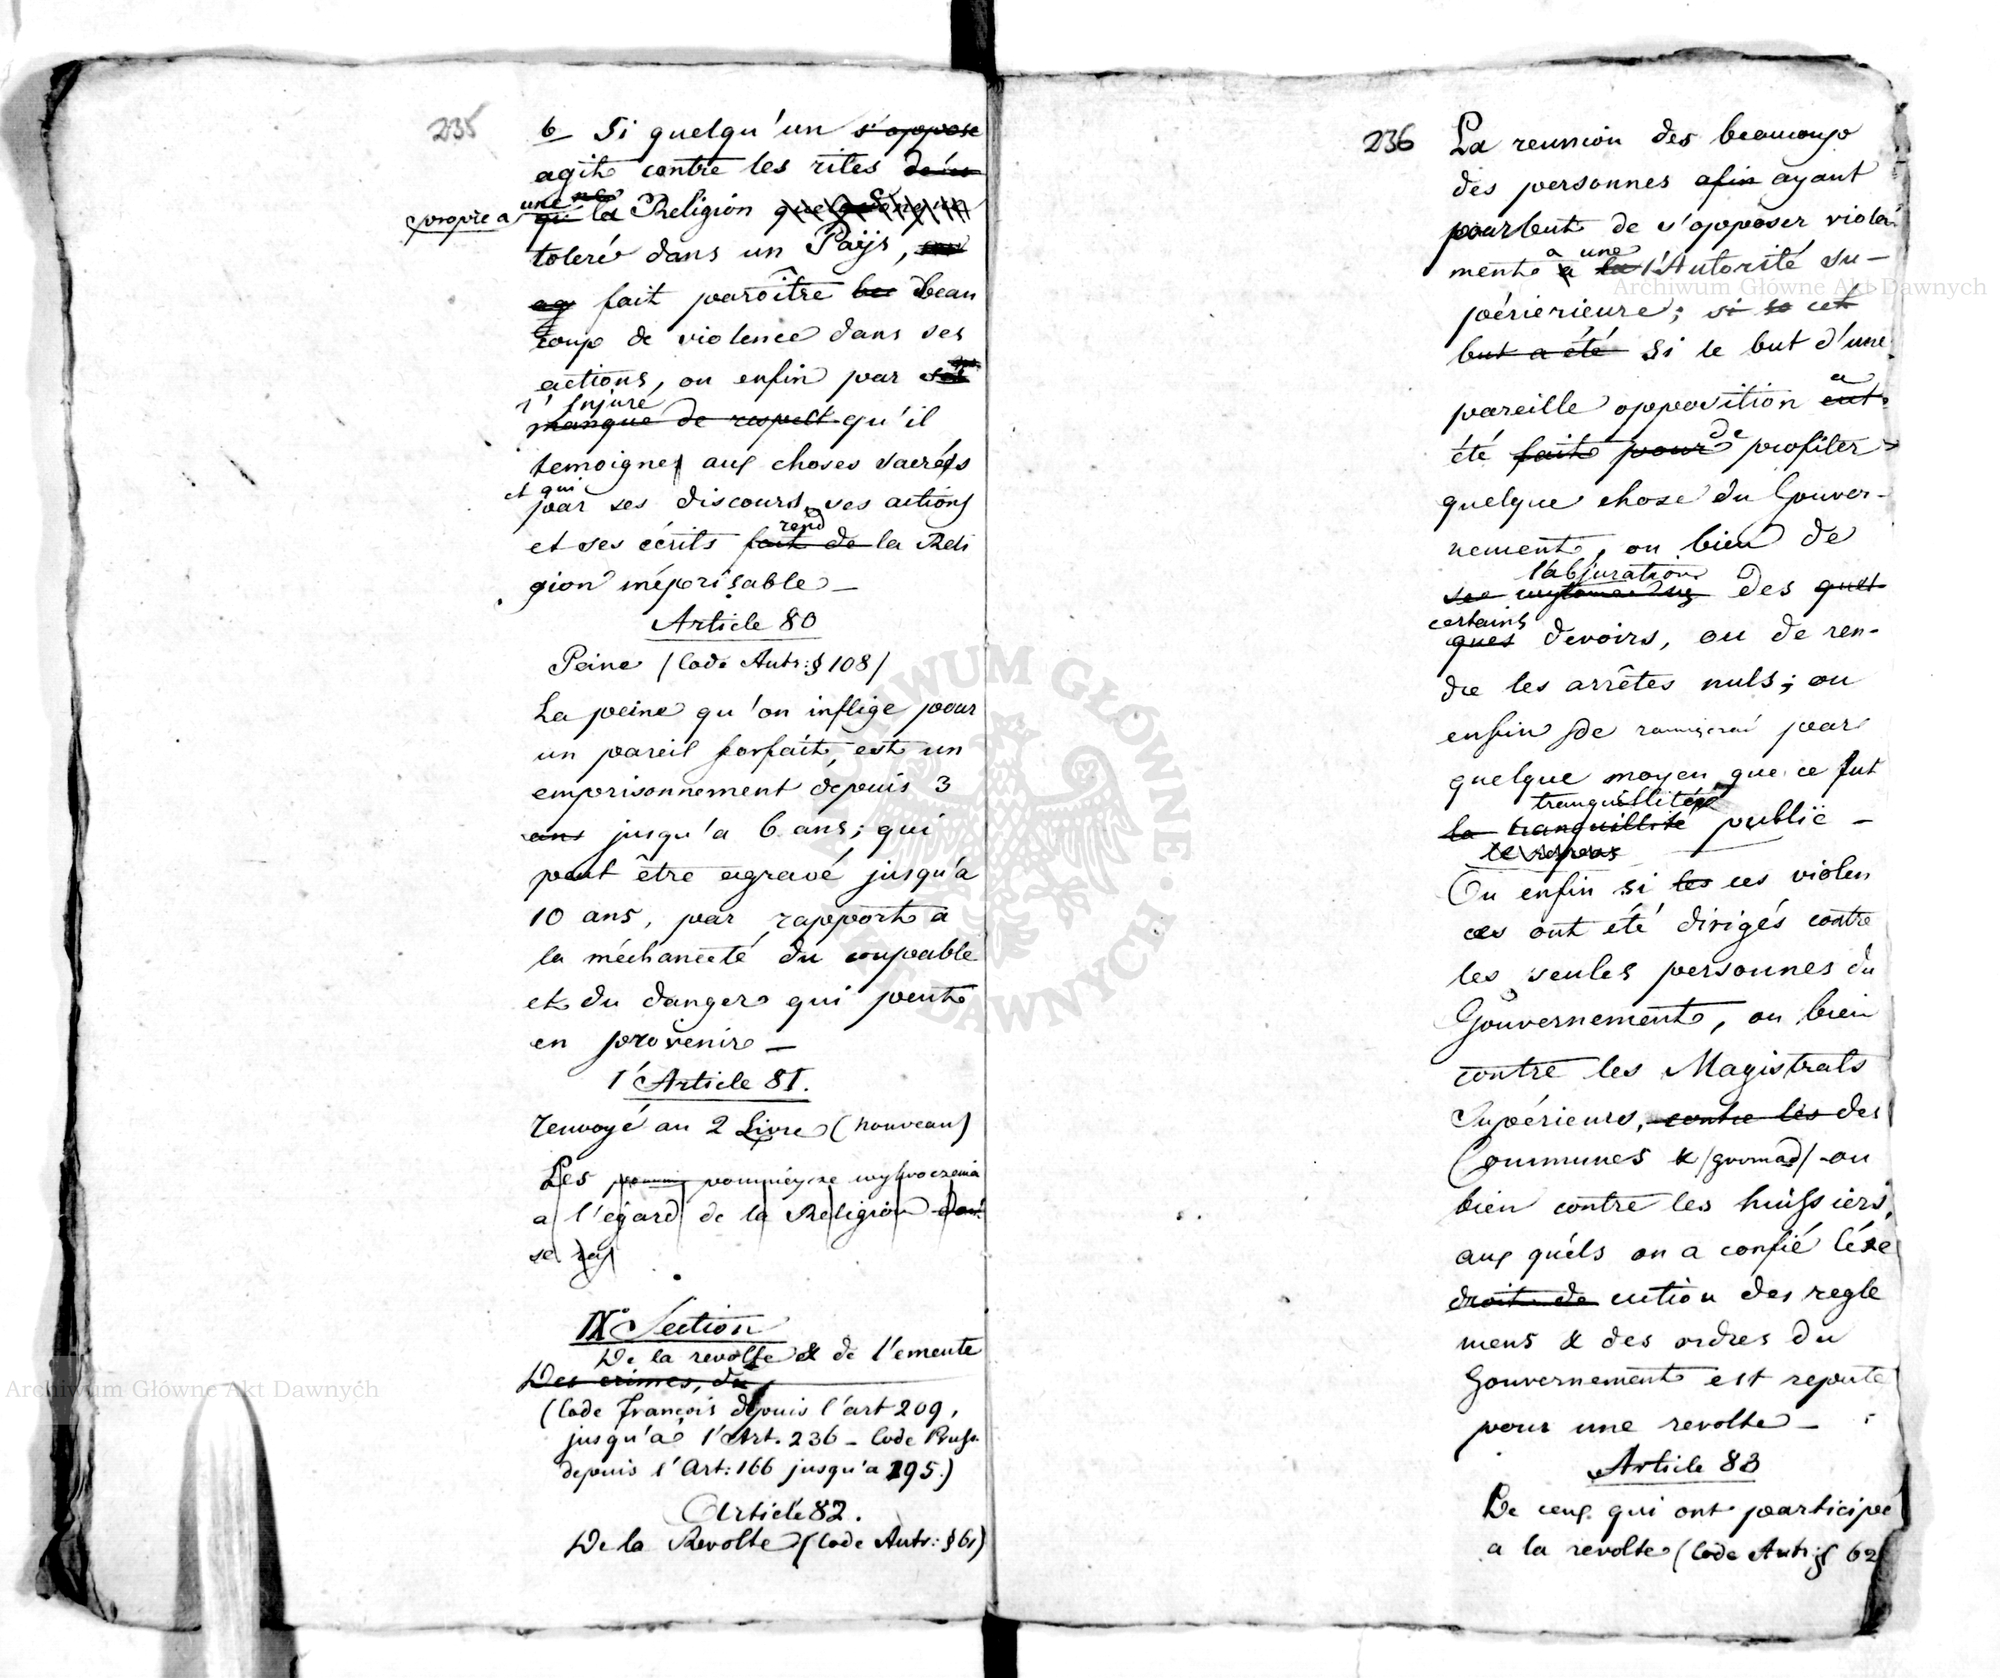 235
b Si quelqu'un s'oppose
agit contre les rites
propre a une
qu la Religion
toleré dans un Païjs,
ag fait paroître bea beau
coup de violence dans ses
actions, ou enfin par
l'Injure
manque de respect qu'il
temoigne aux choses sacrés
et qui
par ses discours, ses actions
rend
et ses écrits fait de la Reli
gion méprisable —
Article 80
Peine (Code Autr: § 108)
La peine qu'on inflige pour
un pareil forfait, est un
emprisonnement depuis 3
ans jusqu'a 6 ans; qui
peut être agravé jusqu'a
10 ans, par rapport à
la méchanceté du coupable
et du danger qui peut
en provenir —
l'Article 81.
renvoyé au 2 Livre (nouveau)
Les pomniejsze wykroczenia
a l'égard de la Religion
se
IX° Section
De la revolte & de l'emeute
Des crimes, du
(Code François depuis l'art 209,
jusqu'à l'Art. 236 - Code Pruss.
depuis l'Art: 166 jusqu'a 195.)
Article 82.
De la Revolte (Code Autr: § 61)
236
La reunion des beaucoup
des personnes afin ayant
pour but de s'opposer violen
a une
ment a la l'Autorité su-
périerieure; si se cet
but a été Si le but d'une
a
pareille opposition eut
de
été fait pour profiter
quelque chose du Gouver-
nement, ou bien de
l'abjuration
des quel
certains
ques devoirs, ou de ren-
dre les arrêtes nuls; ou
enfin de par
quelque moyen que ce fut
tranquillité
la tranquillité publie -
le repos
Ou enfin si les ces violen
ces ont été dirigés contre
les seules personnes du
Gouvernement, ou bien
contre les Magistrats
Supérieurs, contre les des
Communes & (gromad) ou
bien contre les huissiers,
aux quéls on a confié léxe
droit de cution des regle
mens & des ordres du
Gouvernement est reputé
pour une revolte —
Article 83
De ceux qui ont participé
a la revolte (Code Autr: § 62
Archiwum Główne Akt Dawnych
Archiwum Główne Akt Dawnych
ARCHIWUM GŁÓWNE AKT DAWNYCH